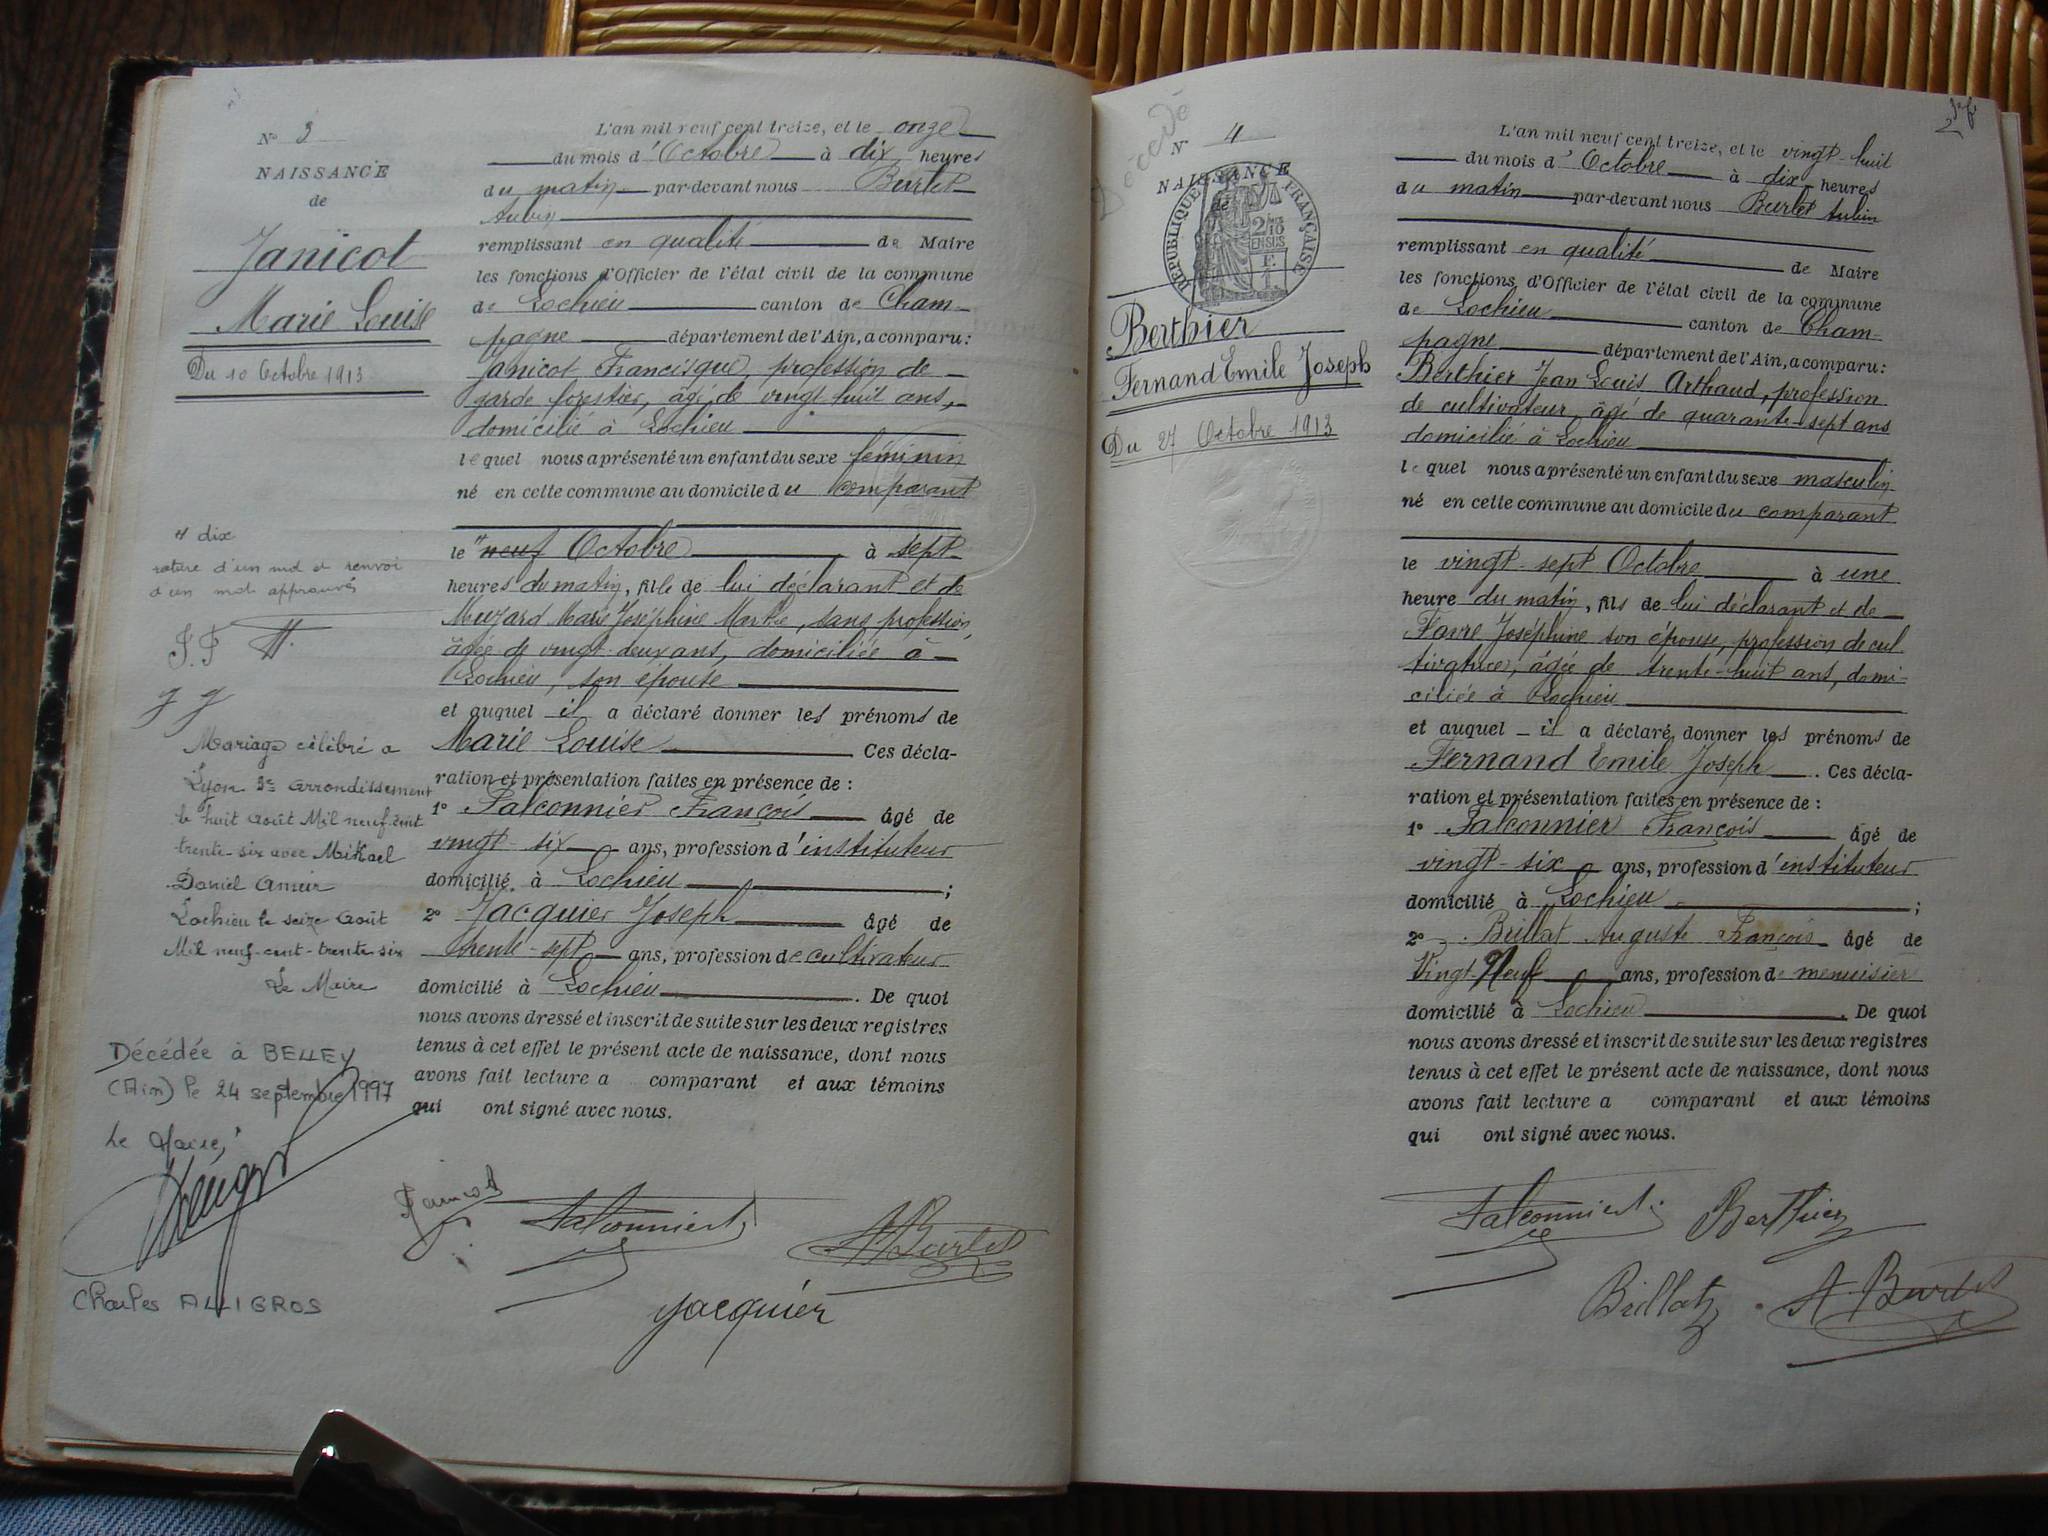 N° 3
NAISSANCE
de
Janicot
Marie Louise
Du 10 Octobre 1913
L'an mil neuf cent treize, et le onze
du mois d'Octobre à dix heures
du matin par-devant nous Burlet
Aubin
remplissant en qualité de Maire
les fonctions d'Officier de l'état civil de la commune
de Lochieu canton de Cham-
pagne département de l'Ain, a comparu:
Janicot Francisque, profession de
garde forestier, âgé de vingt huit ans,
domicilié à Lochieu
lequel nous a présenté un enfant du sexe féminin
né en cette commune au domicile du comparant
le " neuf Octobre à sept
heures du matin, fille de lui déclarant et de
Muzard Marie Joséphine Marthe, sans profession,
âgée de vingt-deux ans, domiciliée à
Lochieu, son épouse
et auquel il a déclaré donner les prénoms de
Marie Louise Ces décla-
ration et présentation faites en présence de :
1° Falconnier François âgé de
vingt-six ans, profession d'instituteur
domicilié à Lochieu ;
2° Jacquier Joseph âgé de
trente-sept ans, profession de cultivateur
domicilié à Lochieu . De quoi
nous avons dressé et inscrit de suite sur les deux registres
tenus à cet effet le présent acte de naissance, dont nous
avons fait lecture a comparant et aux témoins
qui ont signé avec nous.
" dix
rature d'un mot et renvoi
d'un mot approuvés
J.F
Mariage célébré a
Lyon 3e arrondissement
le huit Août Mil neuf cent
trente-six avec Mikael
Daniel Ameir
Lochieu le seize Août
Mil neuf-cent-trente-six
Le Maire
Décédée à BELLEY
(Ain) le 24 septembre 1997
Le Maire,
Charles ALLIGROS
Janicot Falconnier A Burlet
Jacquier
Décédé
N° 4
NAISSANCE
de
RÉPUBLIQUE FRANÇAISE
2/10
EN SUS
F.
1.
Berthier
Fernand Emile Joseph
Du 27 Octobre 1913
L'an mil neuf cent treize, et le vingt-huit
du mois d'Octobre à dix heures
du matin par-devant nous Burlet Aubin
remplissant en qualité de Maire
les fonctions d'Officier de l'état civil de la commune
de Lochieu canton de Cham-
pagne département de l'Ain, a comparu:
Berthier Jean Louis Arthaud, profession
de cultivateur, âgé de quarante-sept ans
domicilié à Lochieu
lequel nous a présenté un enfant du sexe masculin
né en cette commune au domicile du comparant
le vingt-sept Octobre à une
heure du matin, fils de lui déclarant et de
Favre Joséphine son épouse, profession de cul
tivatrice, âgée de trente-huit ans, domi-
ciliée à Lochieu
et auquel il a déclaré donner les prénoms de
Fernand Emile Joseph . Ces décla-
ration et présentation faites en présence de :
1° Falconnier François âgé de
vingt-six ans, profession d'instituteur
domicilié à Lochieu ;
2° Brillat Auguste François âgé de
Vingt-Neuf ans, profession de menuisier
domicilié à Lochieu . De quoi
nous avons dressé et inscrit de suite sur les deux registres
tenus à cet effet le présent acte de naissance, dont nous
avons fait lecture a comparant et aux témoins
qui ont signé avec nous.
Falconnier Berthier
Brillat A. Burlet